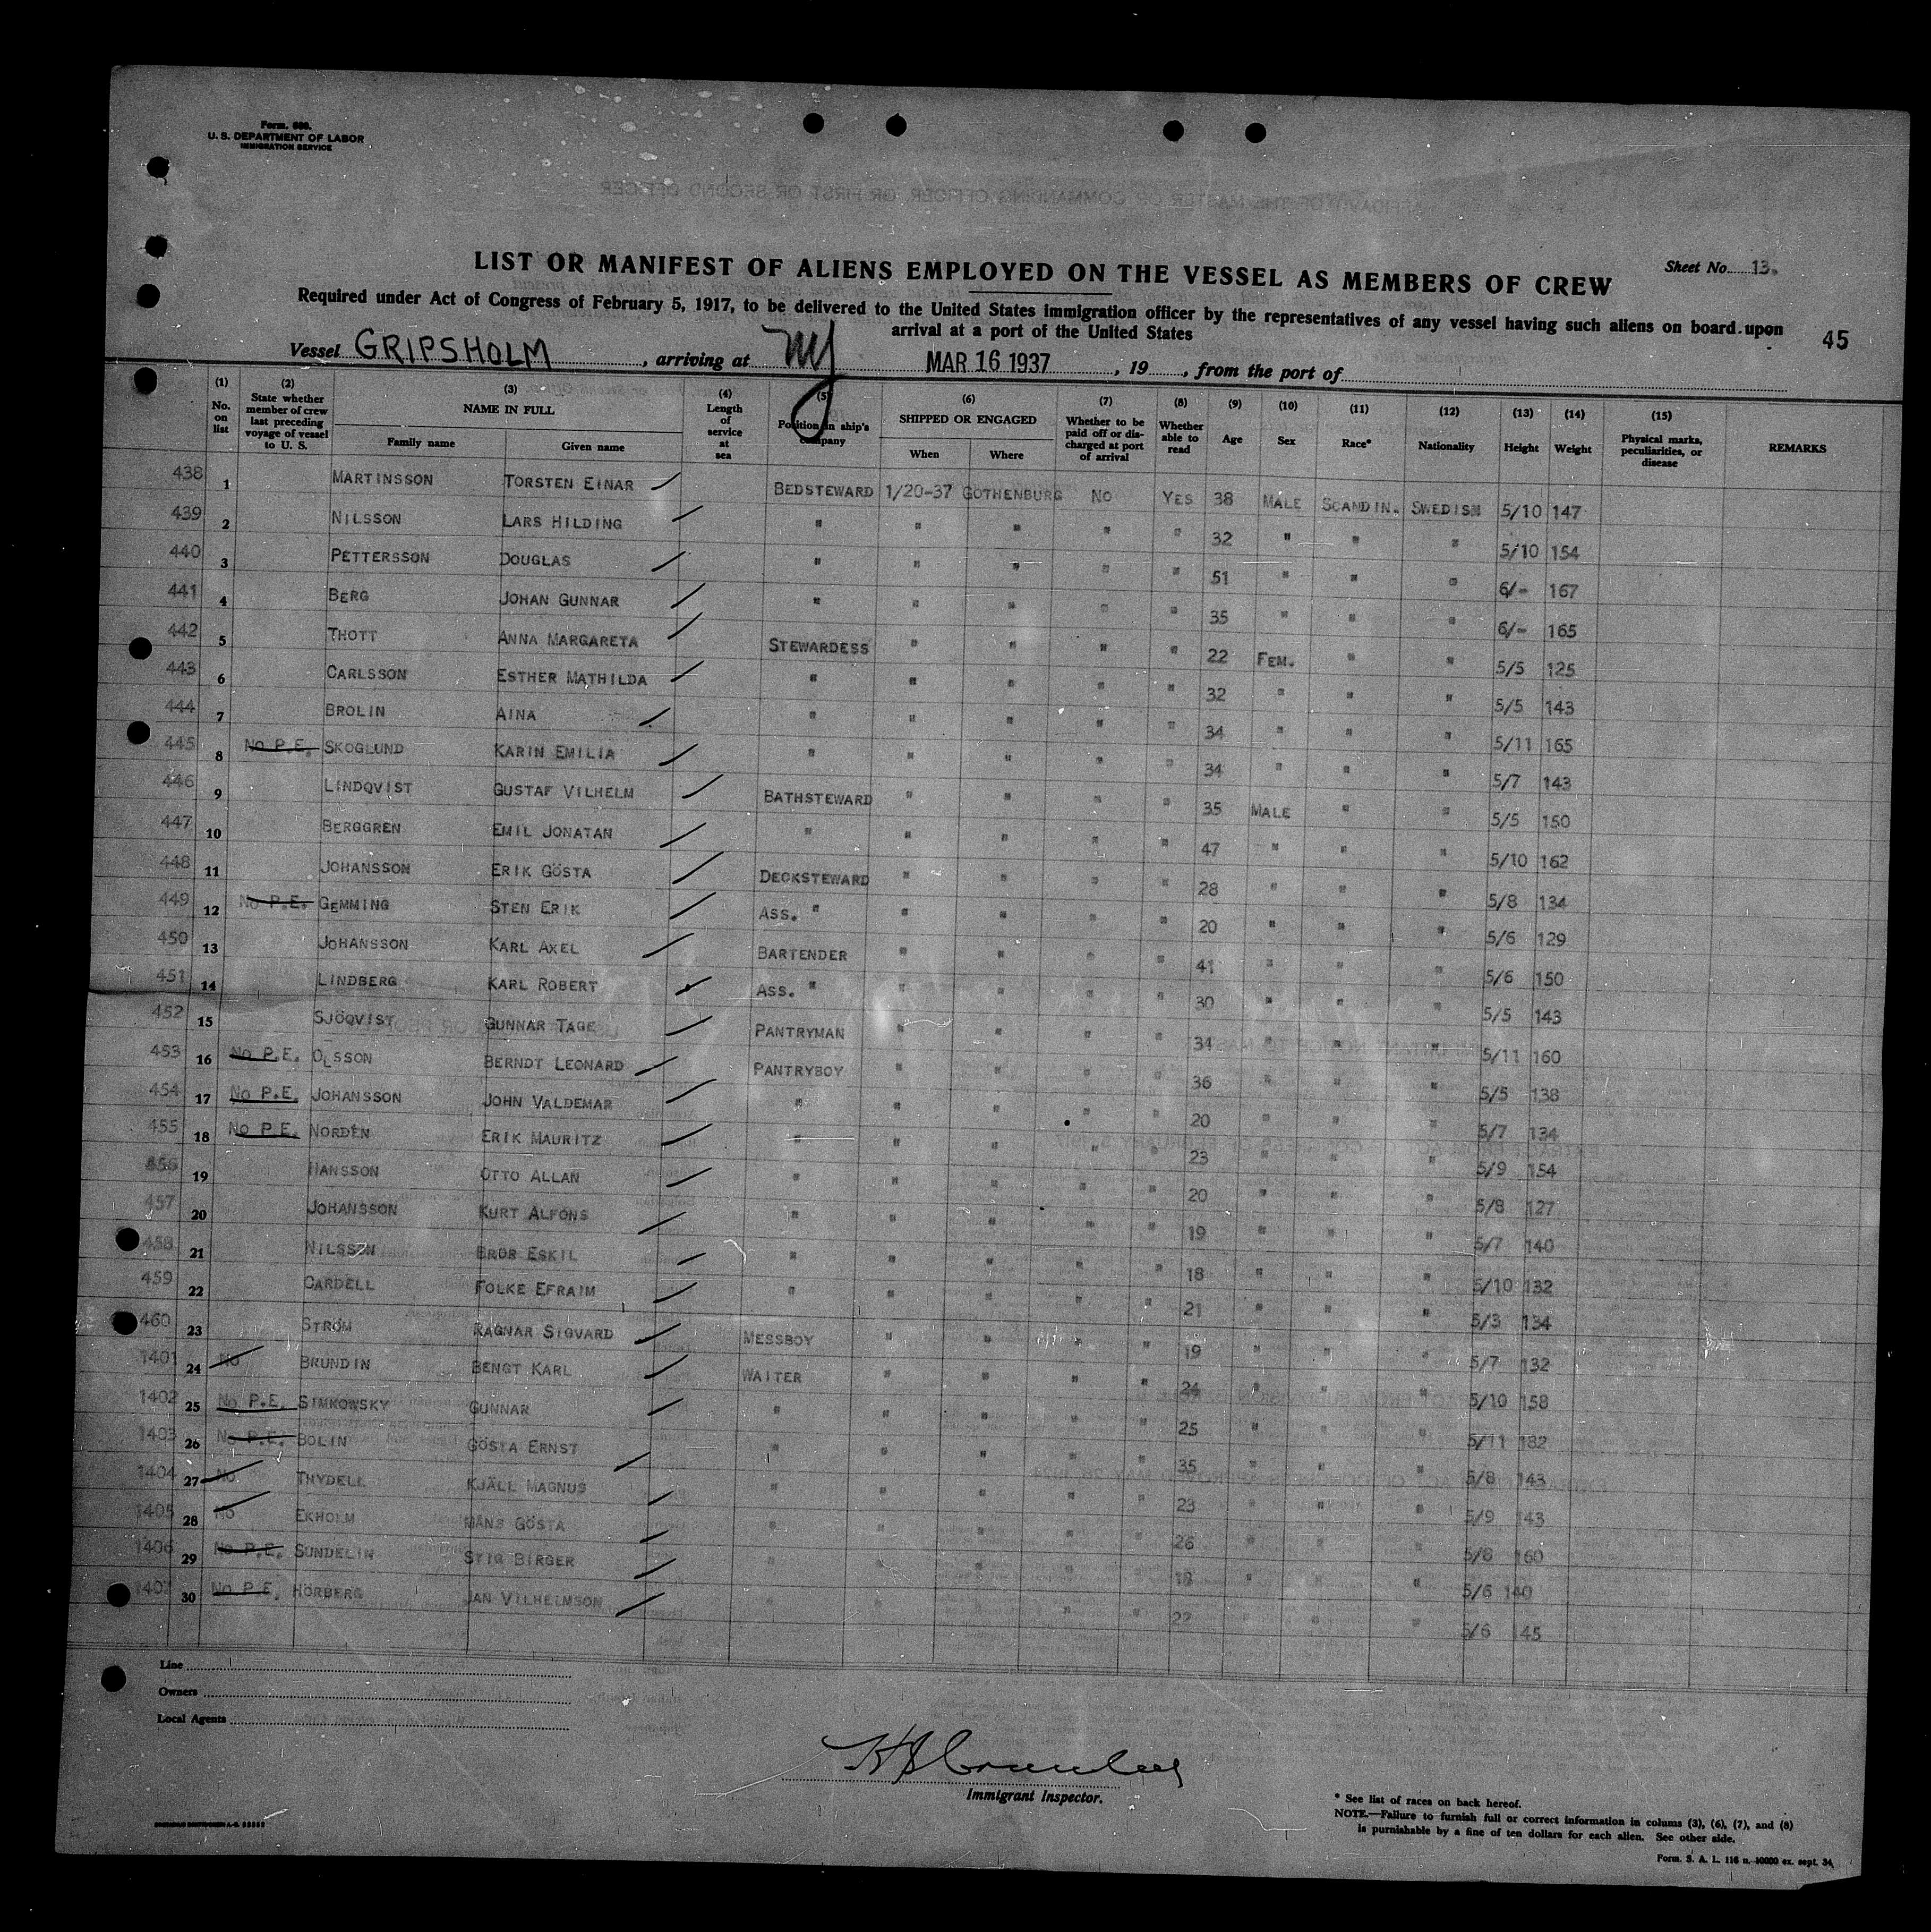 Form. 689.
U. S. DEPARTMENT OF LABOR
IMMIGRATION SERVICE
LIST OR MANIFEST OF ALIENS EMPLOYED ON THE VESSEL AS MEMBERS OF CREW
Sheet No. 13.
Required under Act of Congress of February 5, 1917, to be delivered to the United States immigration officer by the representatives of any vessel having such aliens on board upon
arrival at a port of the United States
45
Vessel GRIPSHOLM, arriving at NY MAR 16 1937, 19 , from the port of
(1) No. on list
(2) State whether member of crew last preceding voyage of vessel to U. S.
(3) NAME IN FULL Family name Given name
(4) Length of service at sea
(5) Position in ship's company
(6) SHIPPED OR ENGAGED When Where
(7) Whether to be paid off or discharged at port of arrival
(8) Whether able to read
(9) Age
(10) Sex
(11) Race*
(12) Nationality
(13) Height
(14) Weight
(15) Physical marks, peculiarities, or disease
REMARKS
438 1 MARTINSSON TORSTEN EINAR BEDSTEWARD 1/20-37 GOTHENBURG NO YES 38 MALE SCANDIN. SWEDISH 5/10 147
439 2 NILSSON LARS HILDING " " " " " 32 " " " 5/10 154
440 3 PETTERSSON DOUGLAS " " " " " 51 " " " 6/- 167
441 4 BERG JOHAN GUNNAR " " " " " 35 " " " 6/- 165
442 5 THOTT ANNA MARGARETA STEWARDESS " " " " 22 FEM. " " 5/5 125
443 6 CARLSSON ESTHER MATHILDA " " " " " 32 " " " 5/5 143
444 7 BROLIN AINA " " " " " 34 " " " 5/11 165
445 8 No P.E. SKOGLUND KARIN EMILIA " " " " " 34 " " " 5/7 143
446 9 LINDQVIST GUSTAF VILHELM BATHSTEWARD " " " " 35 MALE " " 5/5 150
447 10 BERGGREN EMIL JONATAN " " " " " 47 " " " 5/10 162
448 11 JOHANSSON ERIK GÖSTA DECKSTEWARD " " " " 28 " " " 5/8 134
449 12 No P.E. GEMMING STEN ERIK ASS. " " " " " 20 " " " 5/6 129
450 13 JOHANSSON KARL AXEL BARTENDER " " " " 41 " " " 5/6 150
451 14 LINDBERG KARL ROBERT ASS. " " " " " 30 " " " 5/5 143
452 15 SJÖQVIST GUNNAR TAGE PANTRYMAN " " " " 34 " " " 5/11 160
453 16 No P.E. OLSSON BERNDT LEONARD PANTRYBOY " " " " 36 " " " 5/5 138
454 17 No P.E. JOHANSSON JOHN VALDEMAR " " " " " 20 " " " 5/7 134
455 18 No P.E. NORDÉN ERIK MAURITZ " " " " " 23 " " " 5/9 154
456 19 HANSSON OTTO ALLAN " " " " " 20 " " " 5/8 127
457 20 JOHANSSON KURT ALFONS " " " " " 19 " " " 5/7 140
458 21 NILSSON BROR ESKIL " " " " " 18 " " " 5/10 132
459 22 CARDELL FOLKE EFRAIM " " " " " 21 " " " 5/3 134
460 23 STRÖM RAGNAR SIGVARD MESSBOY " " " " 19 " " " 5/7 132
1401 24 No BRUNDIN BENGT KARL WAITER " " " " 24 " " " 5/10 158
1402 25 No P.E. SIMKOWSKY GUNNAR " " " " " 25 " " " 5/11 182
1403 26 No P.E. BOLIN GÖSTA ERNST " " " " " 35 " " " 5/8 143
1404 27 No THYDELL KJÄLL MAGNUS " " " " " 23 " " " 5/9 143
1405 28 No EKHOLM MÅNS GÖSTA " " " " " 26 " " " 5/8 160
1406 29 No P.E. SUNDELIN STIG BIRGER " " " " " 18 " " " 5/6 140
1407 30 No P.E. HÖRBERG JAN VILHELMSON " " " " " 22 " " " 5/6 145
Line
Owners
Local Agents
Immigrant Inspector.
* See list of races on back hereof.
NOTE.—Failure to furnish full or correct information in colums (3), (6), (7), and (8)
is punishable by a fine of ten dollars for each alien. See other side.
Form. S. A. L. 116 n. 10000 ex. sept. 34.